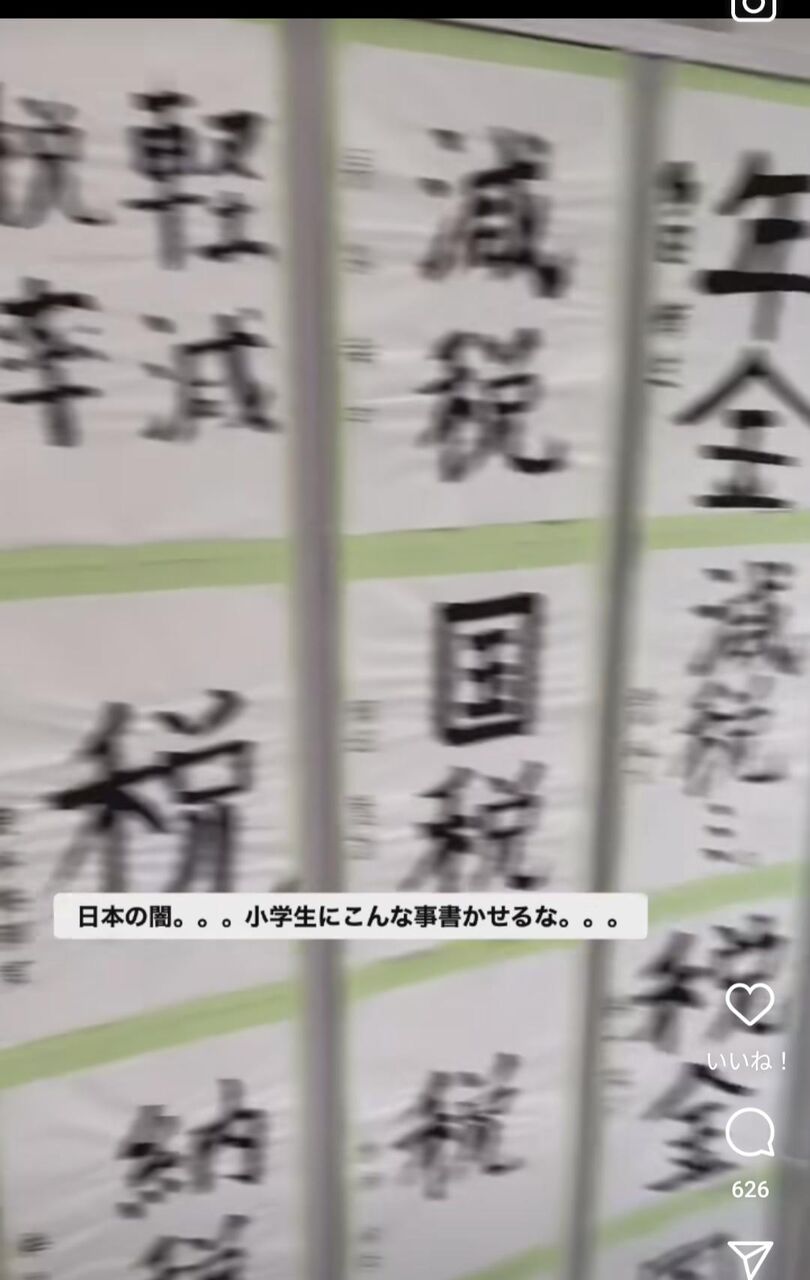 軽減
税率
減税
年金
税
国税
減税
納税
税
税金
日本の闇。。。小学生にこんな事書かせるな。。。
いいね！
626